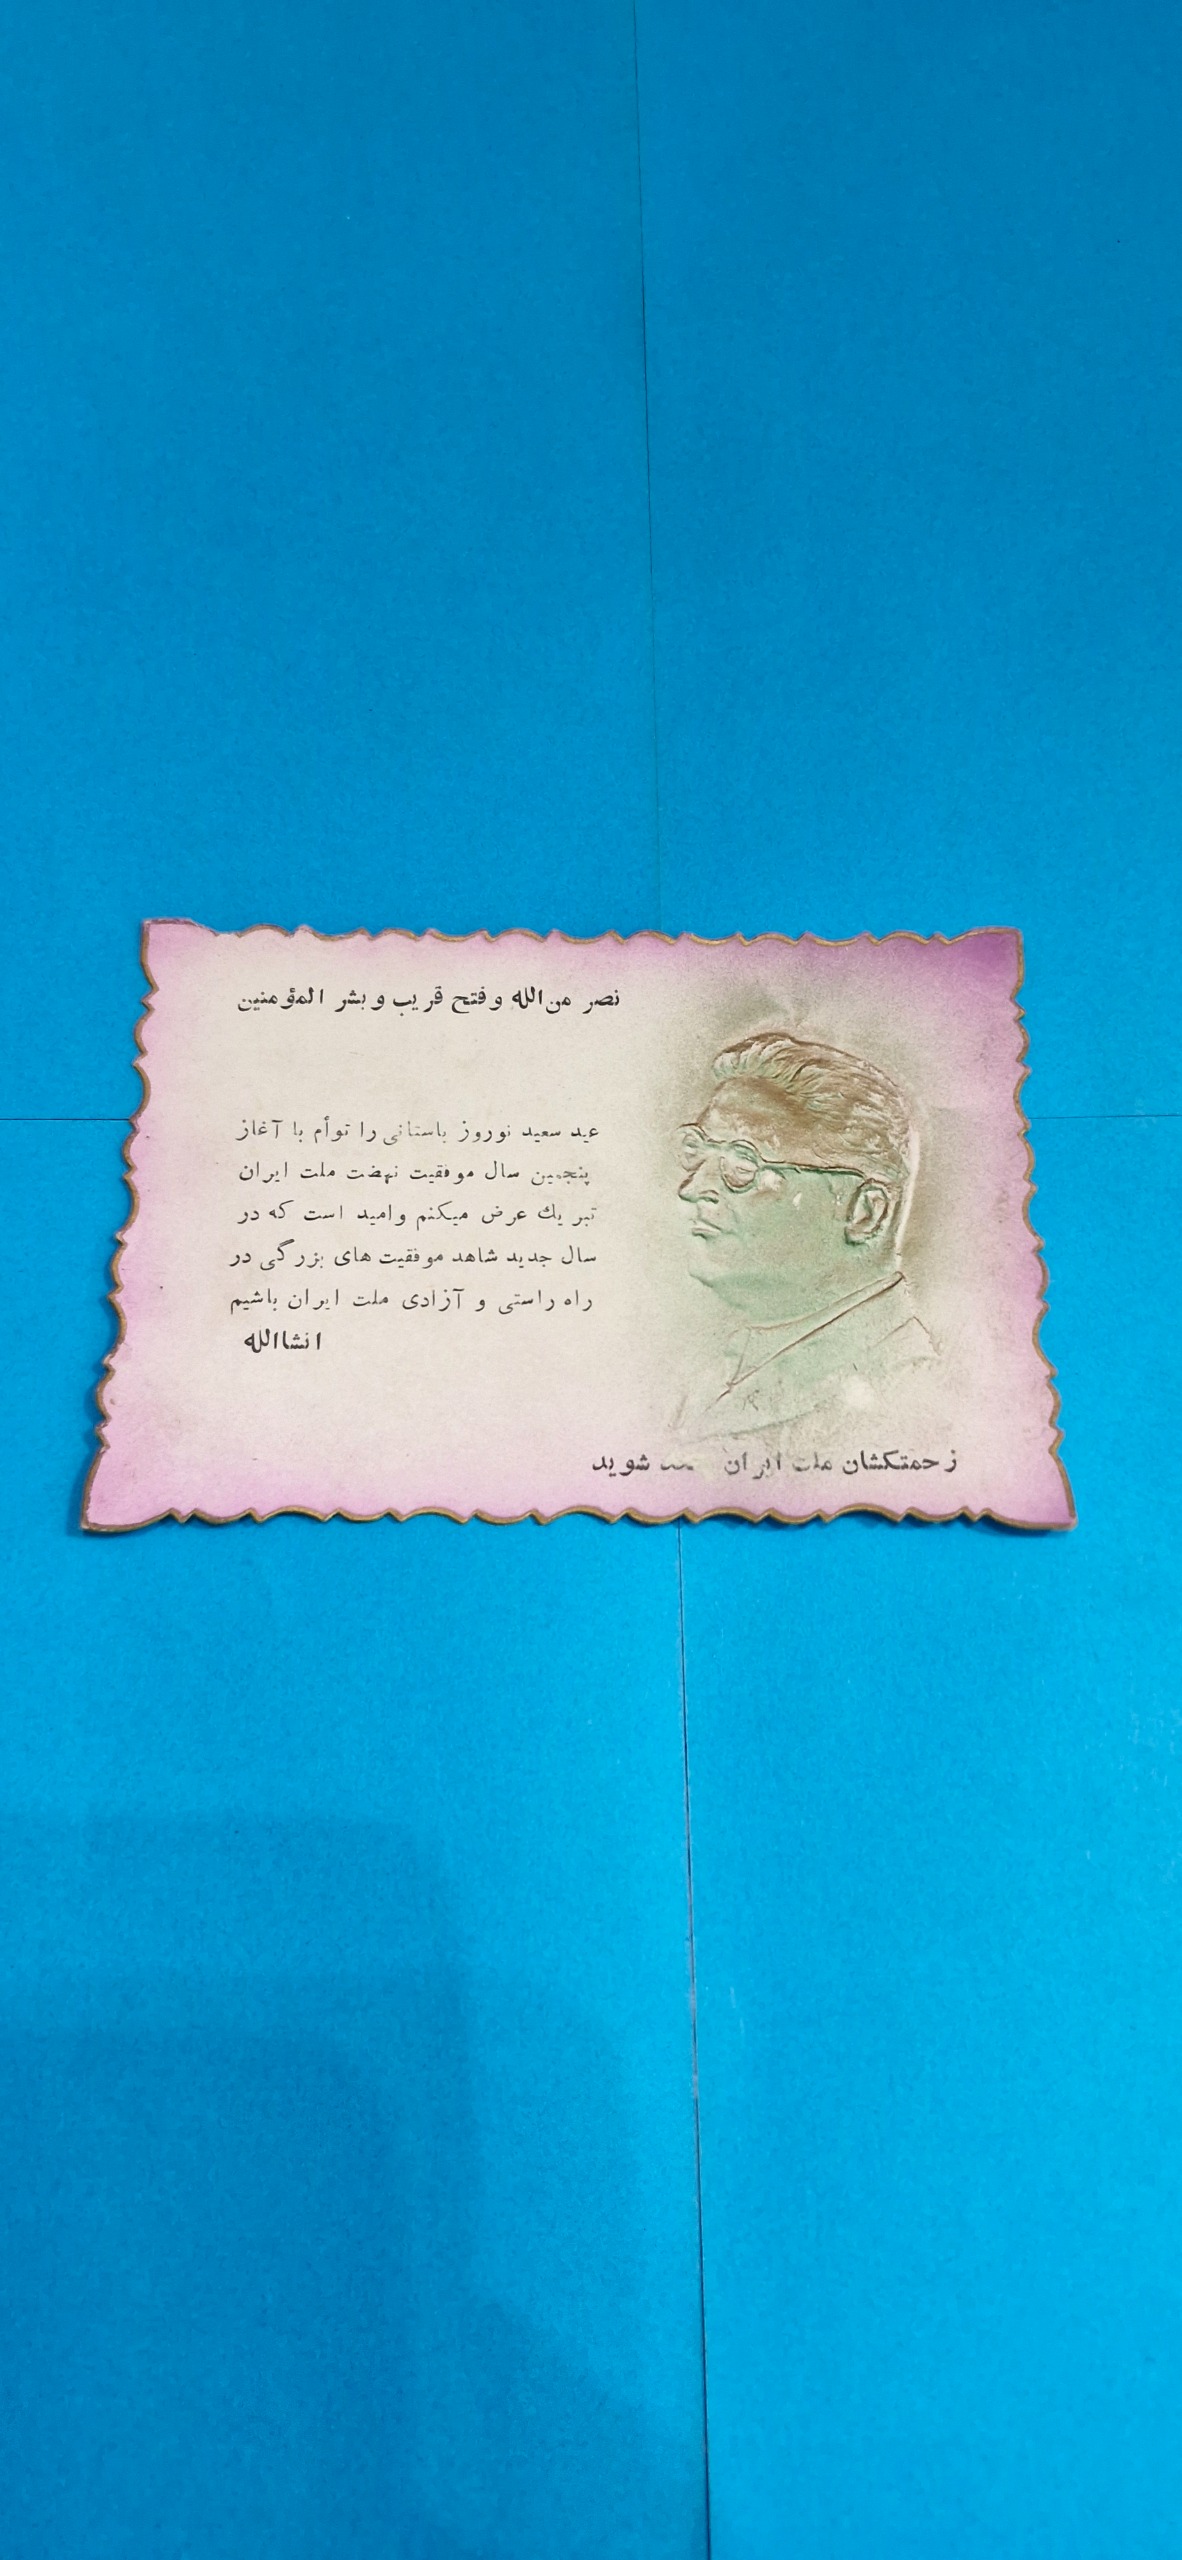 نصر من الله و فتح قریب و بشر المؤمنین
عید سعید نوروز باستانی را توأم با آغاز
پنجمین سال موفقیت نهضت ملت ایران
تبریك عرض میکنم و امید است که در
سال جدید شاهد موفقیت های بزرگی در
راه راستی و آزادی ملت ایران باشیم
انشاالله
زحمتکشان ملت ایران شوید